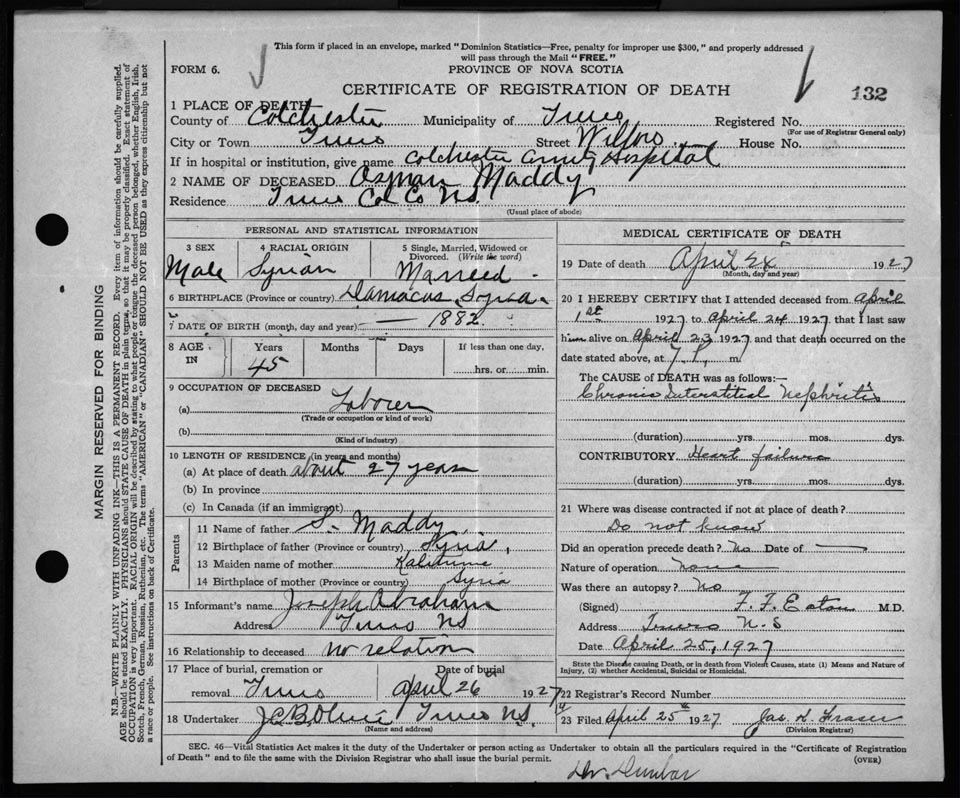 This form if placed in an envelope, marked "Dominion Statistics—Free, penalty for improper use $300," and properly addressed
will pass through the Mail "FREE."
FORM 6.
PROVINCE OF NOVA SCOTIA
CERTIFICATE OF REGISTRATION OF DEATH
132
1 PLACE OF DEATH
County of Colchester Municipality of Truro Registered No.
(For use of Registrar General only)
City or Town Truro Street Willow House No.
If in hospital or institution, give name Colchester County Hospital
2 NAME OF DECEASED Osman Maddy
Residence Truro Col. Co N.S.
(Usual place of abode)
PERSONAL AND STATISTICAL INFORMATION
3 SEX 4 RACIAL ORIGIN 5 Single, Married, Widowed or Divorced. (Write the word)
Male Syrian Married
6 BIRTHPLACE (Province or country) Damacus, Syria
7 DATE OF BIRTH (month, day and year) — 1882
8 AGE IN Years Months Days If less than one day,
45 hrs. or min.
9 OCCUPATION OF DECEASED
(a) Laborer
(Trade or occupation or kind of work)
(b)
(Kind of industry)
10 LENGTH OF RESIDENCE (in years and months)
(a) At place of death about 27 years
(b) In province
(c) In Canada (if an immigrant)
Parents
11 Name of father S. Maddy
12 Birthplace of father (Province or country) Syria
13 Maiden name of mother
14 Birthplace of mother (Province or country) Syria
15 Informant's name Joseph Abraham
Address Truro NS
16 Relationship to deceased no relation
17 Place of burial, cremation or Date of burial
removal Truro April 26 1927
18 Undertaker Truro N.S.
(Name and address)
MEDICAL CERTIFICATE OF DEATH
19 Date of death April 24 1927
(Month, day and year)
20 I HEREBY CERTIFY that I attended deceased from April
1st 1927 to April 24 1927 that I last saw
him alive on April 23 1927 and that death occurred on the
date stated above, at 7 P. m
The CAUSE of DEATH was as follows:—
Chronic Interstitial Nephritis
(duration) yrs. mos. dys.
CONTRIBUTORY Heart failure
(duration) yrs. mos. dys.
21 Where was disease contracted if not at place of death?
Do not know
Did an operation precede death? No Date of —
Nature of operation none
Was there an autopsy? No
(Signed) F. F. Eaton M.D.
Address Truro N.S
Date April 25, 1927
State the Disease causing Death, or in death from Violent Causes, state (1) Means and Nature of
Injury, (2) whether Accidental, Suicidal or Homicidal.
22 Registrar's Record Number
23 Filed April 25th 1927. Jas. K. Fraser
(Division Registrar)
SEC. 46—Vital Statistics Act makes it the duty of the Undertaker or person acting as Undertaker to obtain all the particulars required in the "Certificate of Registration
of Death" and to file the same with the Division Registrar who shall issue the burial permit. (OVER)
Dr. Dunbar
MARGIN RESERVED FOR BINDING
N.B.—WRITE PLAINLY WITH UNFADING INK—THIS IS A PERMANENT RECORD. Every item of information should be carefully supplied.
AGE should be stated EXACTLY. PHYSICIANS should STATE CAUSE OF DEATH in plain terms, so that it may be properly classified. Exact statement of
OCCUPATION is very important. RACIAL ORIGIN will be described by stating to what people or tongue the deceased person belonged, whether English, Irish,
Scotch, French, German, Russian, Ruthenian, etc. The terms "AMERICAN" or "CANADIAN" SHOULD NOT BE USED as they express citizenship but not
a race or people. See instructions on back of Certificate.